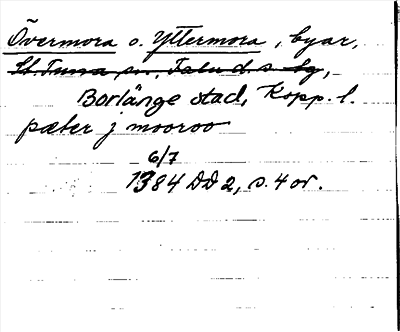 Övermora o. Yttermora, byar,
St. Tuna sn, Falu d.s. bg,
Borlänge stad, Kopp. l.
pæter j mooroo
6/7
1384 DD 2, s. 4 or.